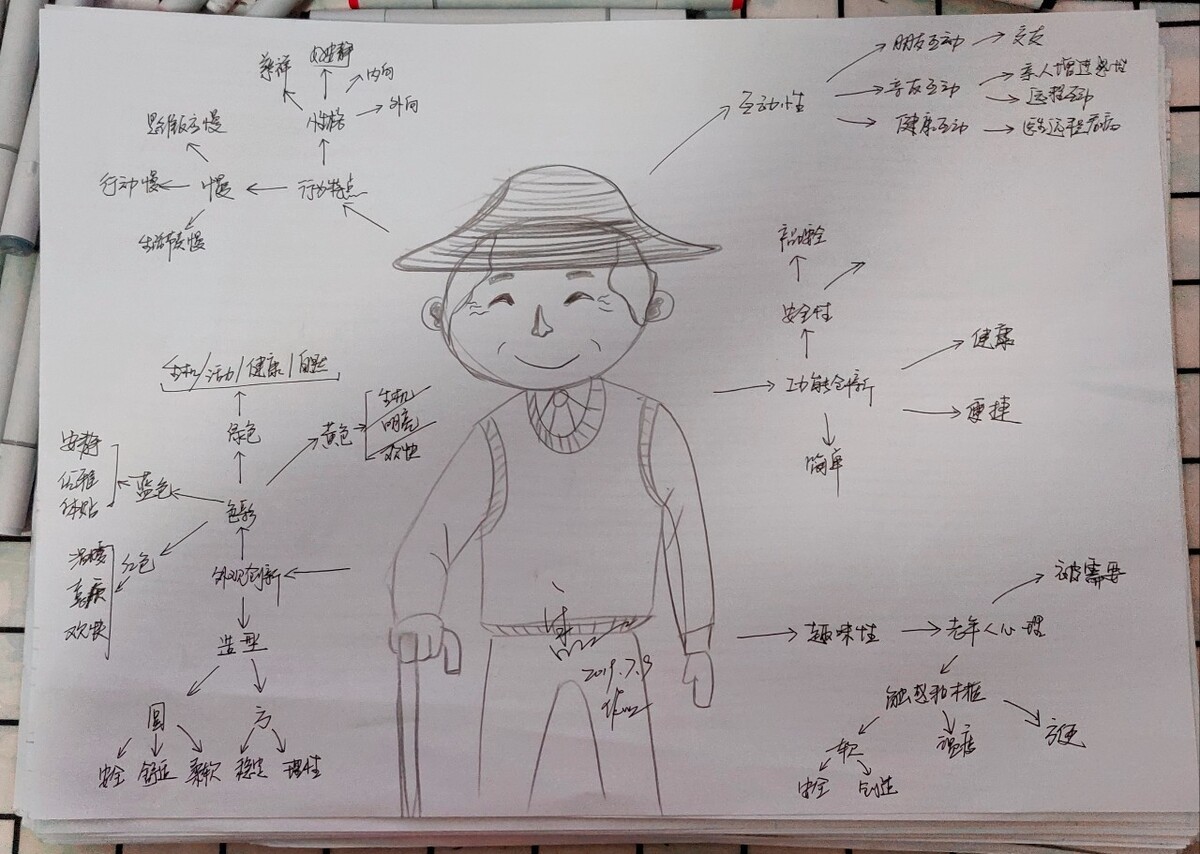 慈祥
安静
内向
外向
性格
思维反应慢
行动慢
慢
行动特点
生活节奏慢
互动性
朋友互动
交友
亲友互动
亲人增进感情
远程互动
健康互动
医生远程看病
产品安全
安全性
功能创新
健康
便捷
简单
生机/活力/健康/自然
绿色
黄色
生机
明亮
欢快
安静
优雅
体贴
蓝色
色彩
温暖
喜庆
欢快
红色
外观创新
造型
圆
方
安全
舒适
柔软
稳定
理性
趣味性
老年人心理
被需要
触感和材框
软
温度
方便
安全
创造
2019.7.9